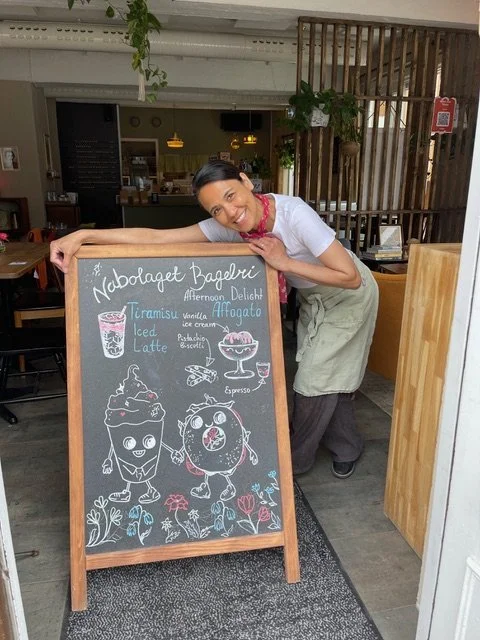 Nabolaget Bageri
Afternoon Delight
Tiramisu
Iced
Latte
Affogato
Vanilla
ice cream
Pistachio
Biscotti
Espresso